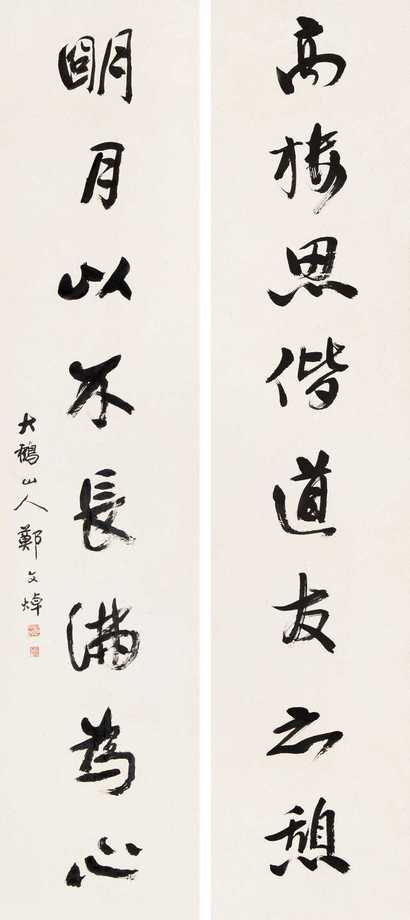 高樓思偕道友憩
明月以不長滿為心
大鶴山人鄭文焯